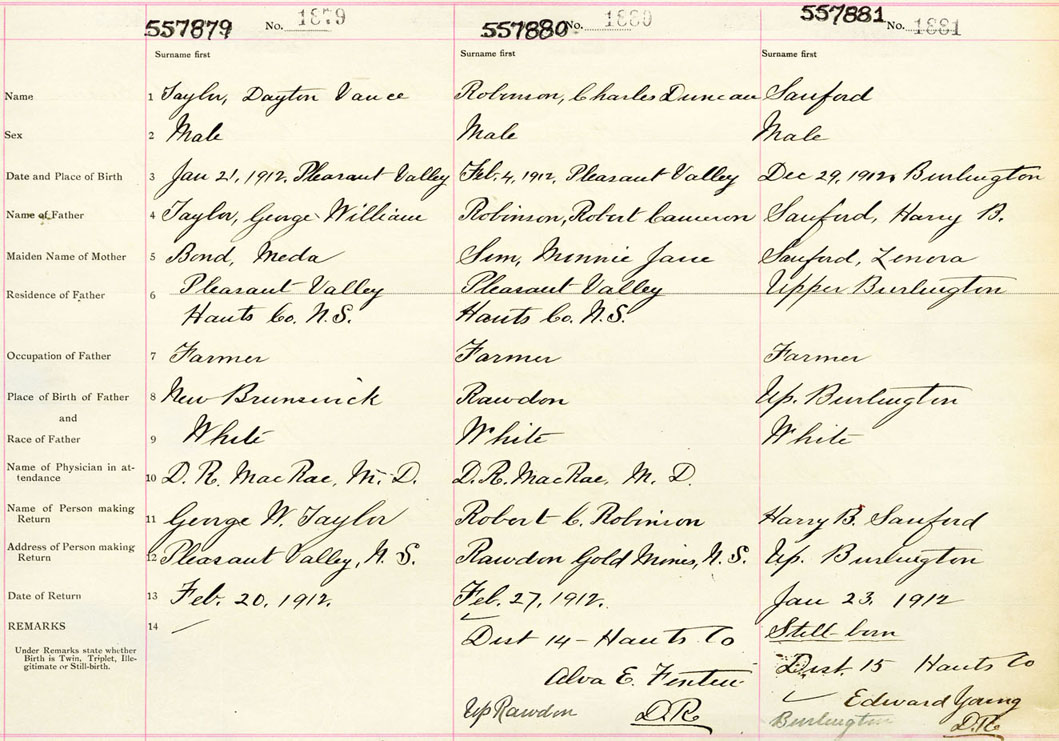 557879 No. 1879 557880 No. 1880 557881 No. 1881
Surname first Surname first Surname first
Name 1 Taylor, Dayton Vance Robinson, Charles Duncan Sanford
Sex 2 Male Male Male
Date and Place of Birth 3 Jan 21, 1912. Pleasant Valley Feb. 4, 1912, Pleasant Valley Dec 29, 1912, Burlington
Name of Father 4 Taylor, George William Robinson, Robert Cameron Sanford, Harry B.
Maiden Name of Mother 5 Bond, Meda Sim, Minnie Jane Sanford, Lenora
Residence of Father 6 Pleasant Valley Pleasant Valley Upper Burlington
Hants Co. N.S. Hants Co. N.S.
Occupation of Father 7 Farmer Farmer Farmer
Place of Birth of Father 8 New Brunswick Rawdon Up. Burlington
and
Race of Father 9 White White White
Name of Physician in at-
tendance 10 D. R. MacRae, M. D. D. R. MacRae, M. D.
Name of Person making
Return 11 George W. Taylor Robert C. Robinson Harry B. Sanford
Address of Person making
Return 12 Pleasant Valley, N. S. Rawdon Gold Mines, N. S. Up. Burlington
Date of Return 13 Feb. 20, 1912. Feb. 27, 1912. Jan 23, 1912
REMARKS 14 Still-born
Dist 14 - Hants Co
Under Remarks state whether
Birth is Twin, Triplet, Ille-
gitimate or Still-birth.
Dist. 15 Hants Co
Alva E.
Edward Young
Up Rawdon D.R. Burlington D.R.